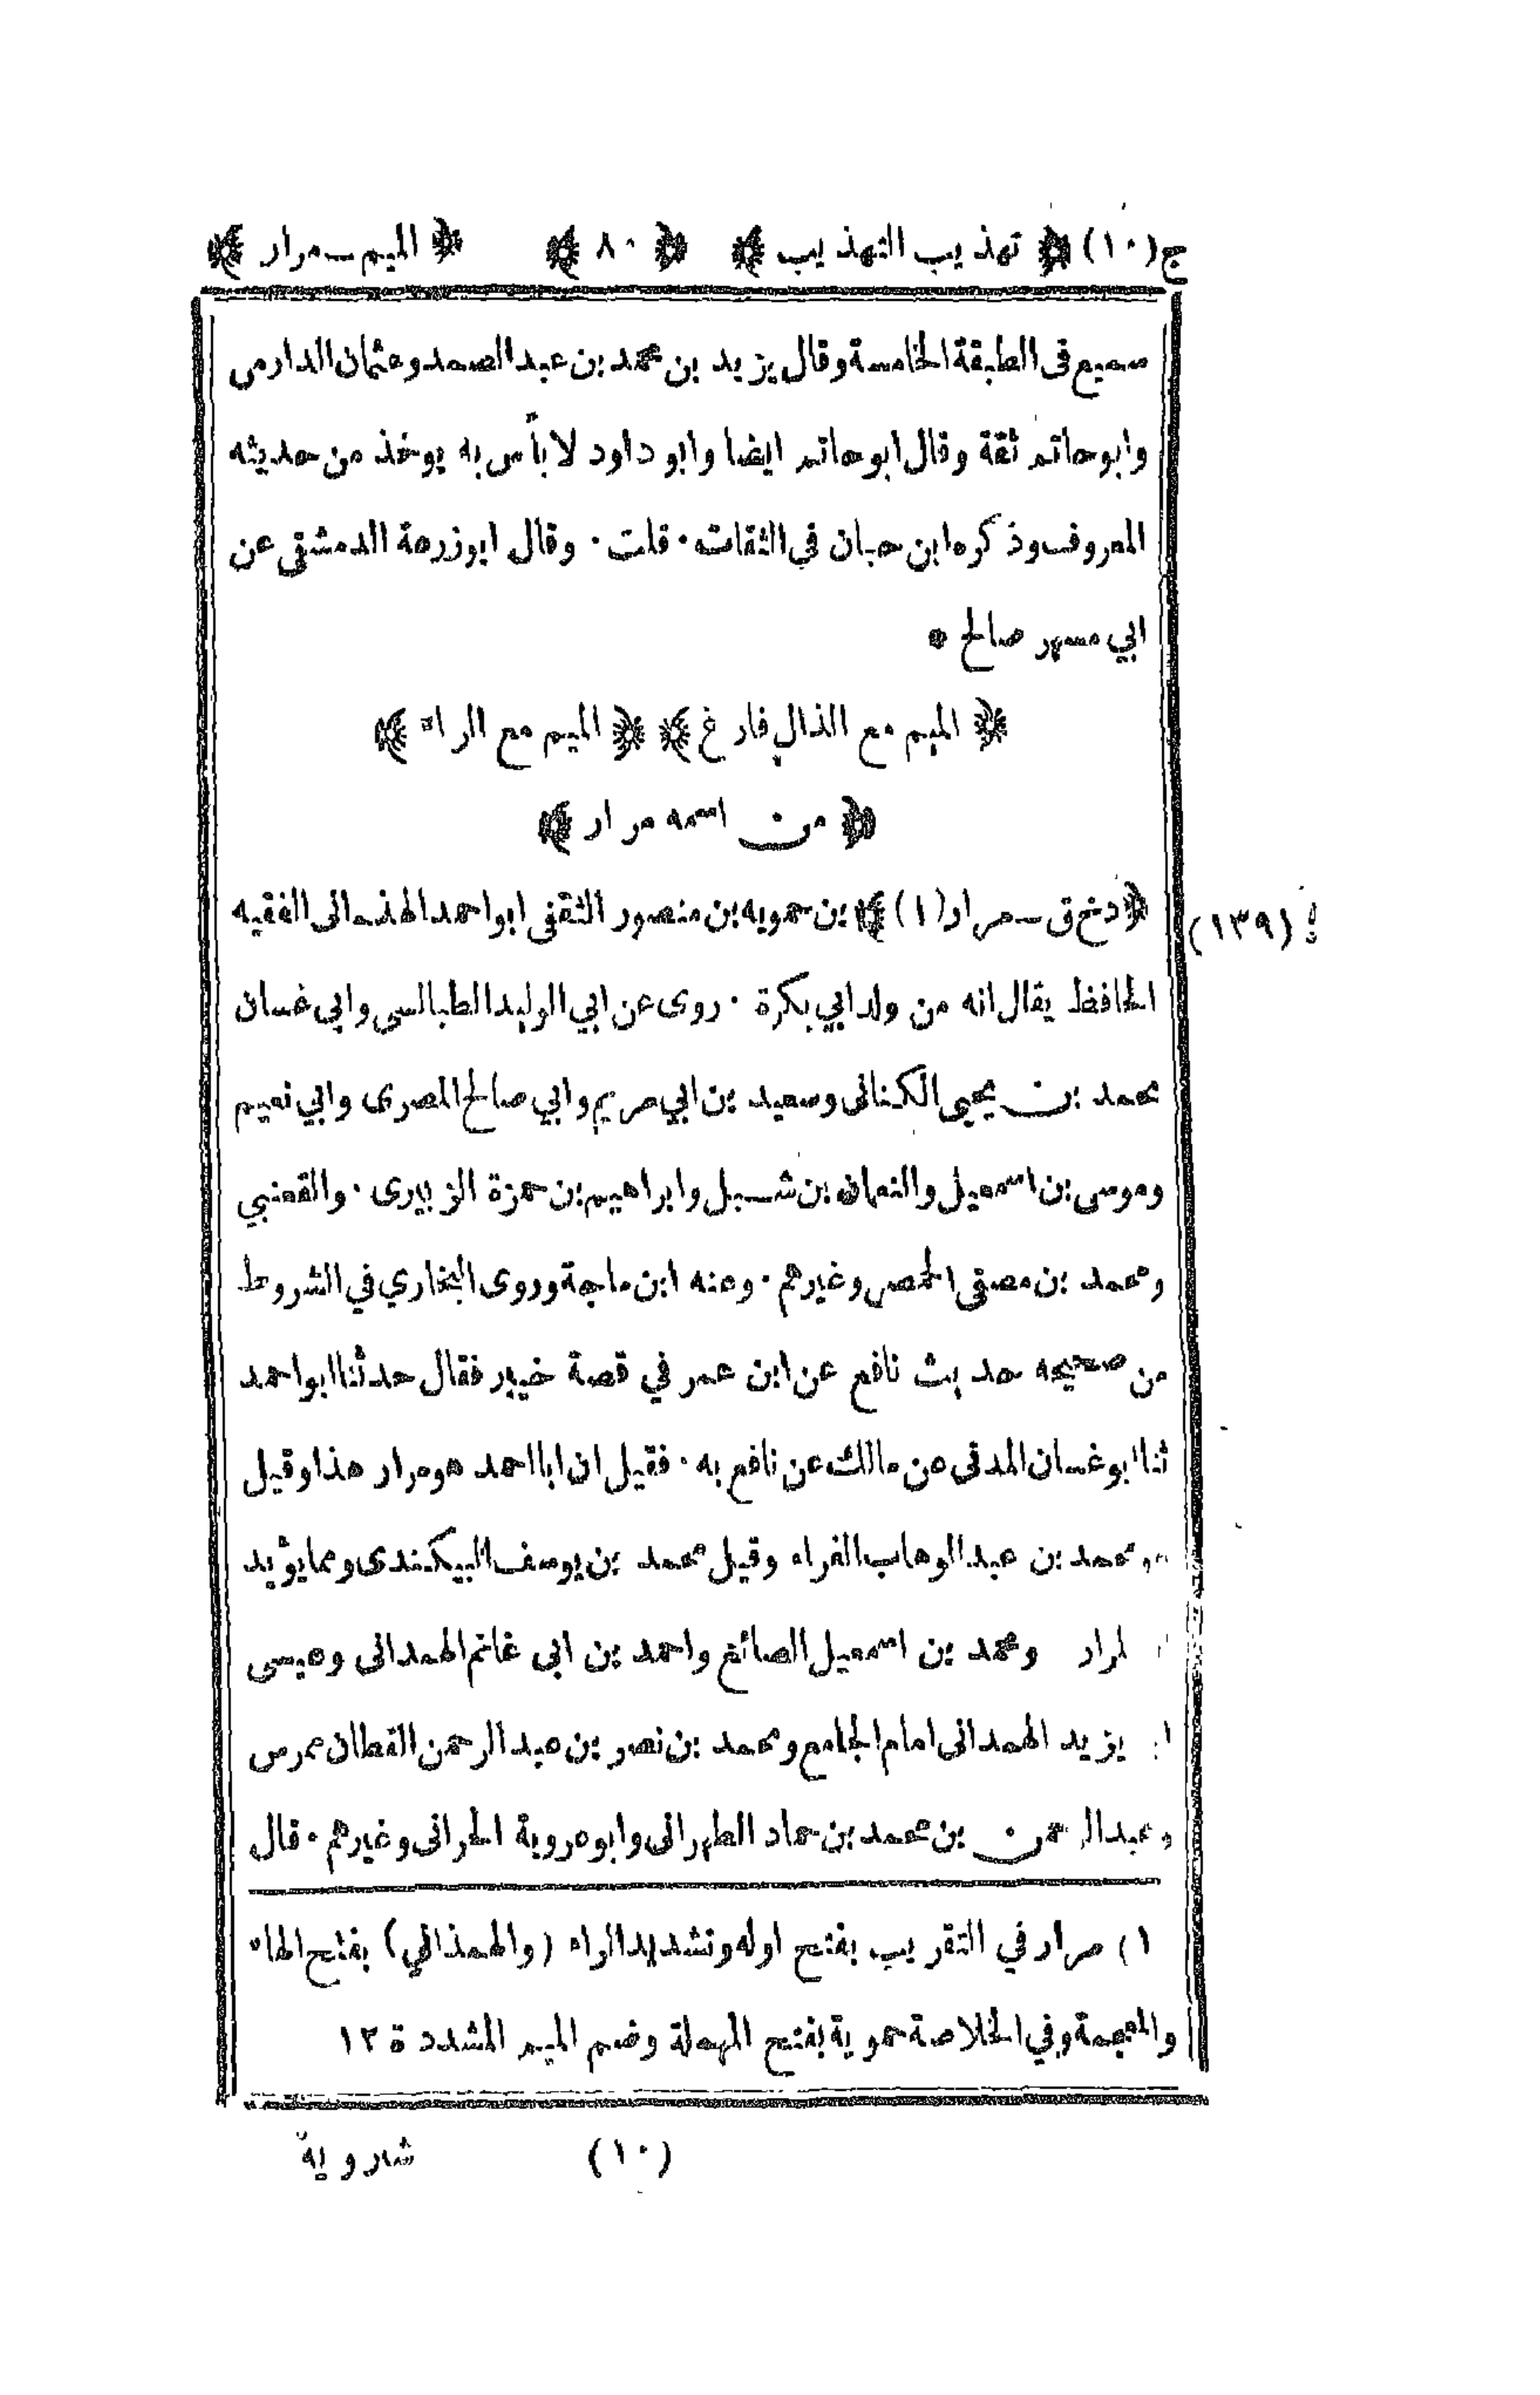 ج(١٠) ﴿ تهذيب التهذيب ﴾ ﴿ ٨٠ ﴾ ﴿ الميم ــ مرار ﴾
سميع فى الطبقة الخامسة وقال يزيد بن محمد بن عبد الصمد وعثمان الدارمى
وابو حاتم ثقة وقال ابو حاتم ايضا وابو داود لا بأس به يوخذ من حديثه
المعروف وذكره ابن حبان في الثقات ٠ قلت ٠ وقال ابو زرعة الدمشقى عن
ابي مسهر صالح *
﴿ الميم مع الذال فارغ ﴾ ﴿ الميم مع الراء ﴾
﴿ من اسمه مرار ﴾
(١٣٩) ﴿ دخ ق ــ مرار (١) ﴾ بن حمويه بن منصور الثقفى ابو احمد الهذمانى الفقيه
الحافظ يقال انه من ولد ابي بكرة ٠ روى عن ابي الوليد الطيالسي وابي غسان
محمد بن يحيى الكنانى وسعيد بن ابي مريم وابي صالح المصرى وابي نعيم
وموسى بن اسمعيل والنعمان بن شبل وابراهيم بن حمزة الزبيرى ٠ والقعنبي
ومحمد بن مصفى الحمصى وغيرهم ٠ وعنه ابن ماجة وروى البخاري في الشروط
من صحيحه حديث نافع عن ابن عمر في قصة خيبر فقال حدثنا ابو احمد
ثنا ابو غسان المدنى عن مالك عن نافع به ٠ فقيل ان ابا احمد هو مرار هذا وقيل
محمد بن عبد الوهاب الفراء وقيل محمد بن يوسف البيكندى ومما يؤيد
لمرار ومحمد بن اسمعيل الصائغ واحمد بن ابى غانم الهمدانى وعيسى
يزيد الهمدانى امام الجامع ومحمد بن نصر بن عبد الرحمن القطان ممرس
وعبد الرحمن بن محمد بن حماد الطهرانى وابو عروبة الحرانى وغيرهم ٠ قال
١) مرار في التقريب بفتح اوله وتشديد الراء (والهمذاني) بفتح الهاء
والمعجمة وفي الخلاصة حموية بفتح المهملة وضم الميم المشددة ١٢
(١٠) شيرويه